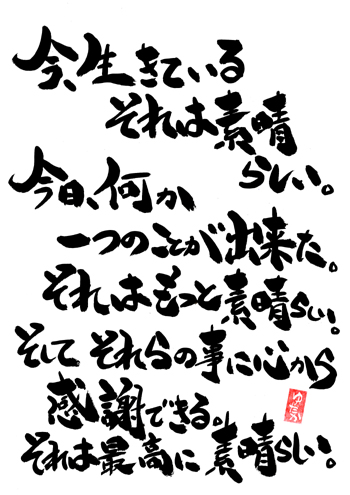 今、生きている
それは素晴
らしい。
今日、何か
一つのことが出来た。
それはもっと素晴らしい。
そして それらの事に心から
感謝できる。
それは最高に素晴らしい。
ゆたか